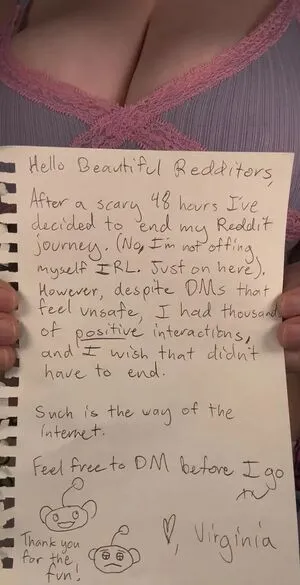 Hello Beautiful Redditors,
After a scary 48 hours I've
decided to end my Reddit
journey. (No, I'm not offing
myself IRL. Just on here).
However, despite DMs that
feel unsafe, I had thousand
of positive interactions,
and I wish that didn't
have to end.
Such is the way of the
internet.
Feel free to DM before I go
Thank you
for the
fun!
♡, Virginia